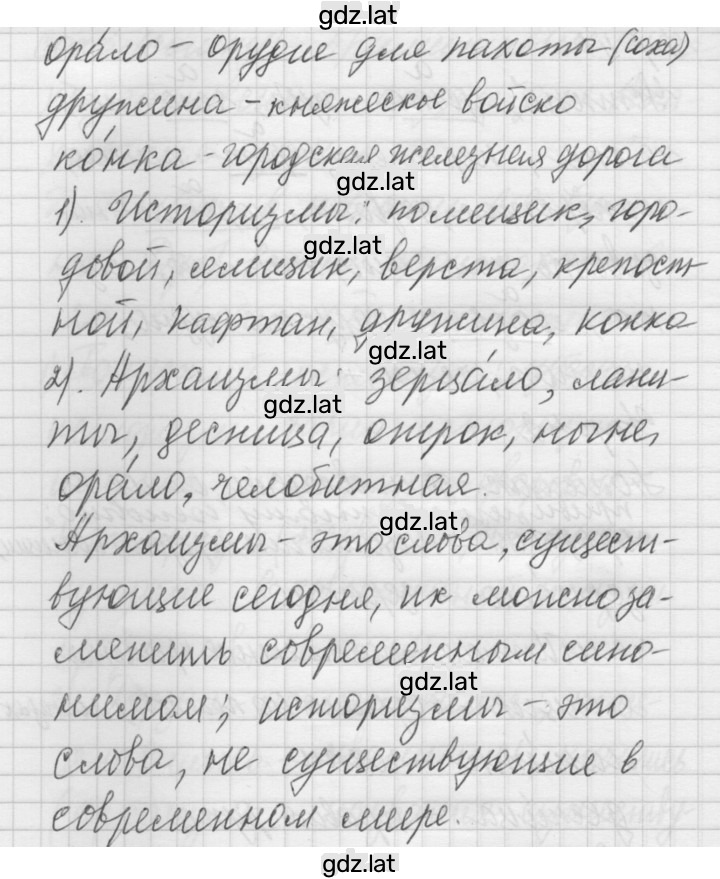 gdz.lat
ора́ло – орудие для пахоты (соха)
дружина – княжеское войско
ко́нка – городская железная дорога
gdz.lat
1). Историзмы: помещик, горо-
gdz.lat
довой, ямщик, верста, крепост-
ной, кафтан, дружина, конка
gdz.lat
2). Архаизмы: зерца́ло, лани-
gdz.lat
ты, десница, отрок, ныне,
ора́ло, челобитная.
gdz.lat
Архаизмы – это слова, сущест-
вующие сегодня, их можно за-
менить современным сино-
gdz.lat
нимом; историзмы – это
слова, не существующие в
современном мире.
gdz.lat